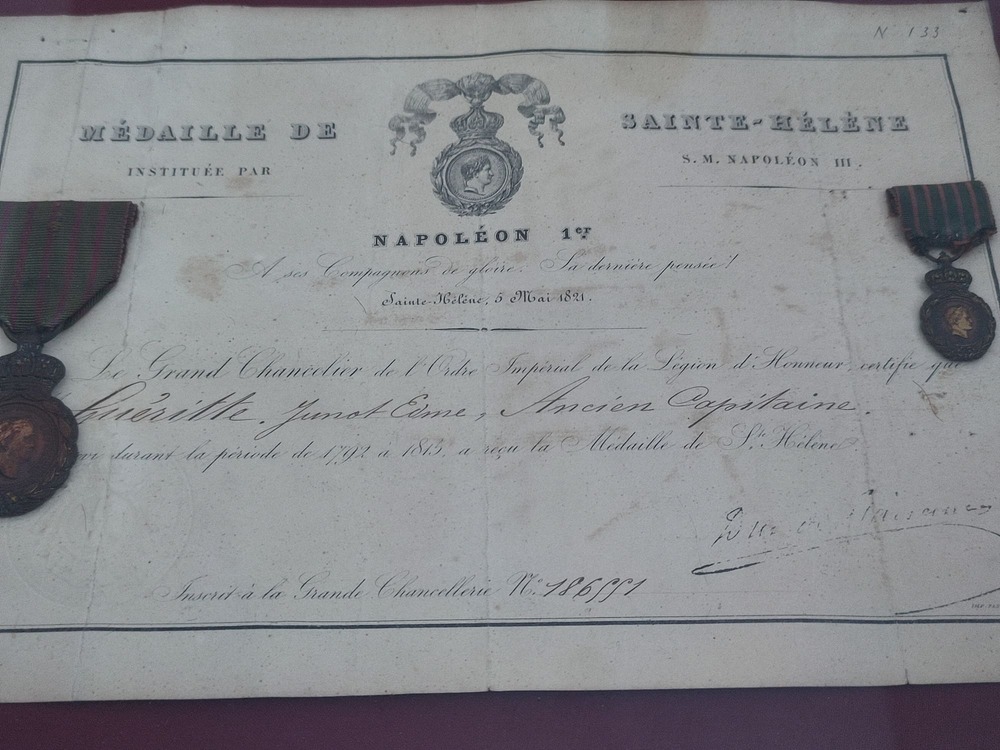 N 133
MÉDAILLE DE SAINTE-HÉLÈNE
INSTITUÉE PAR S. M. NAPOLÉON III.
NAPOLÉON 1er
A ses Compagnons de gloire. Sa dernière pensée!
Sainte-Hélène, 5 Mai 1821.
Le Grand Chancelier de l'Ordre Impérial de la Légion d'Honneur, certifie que
Ancien Capitaine.
durant la période de 1792 à 1815, a reçu la Médaille de Ste Hélène
Inscrit à la Grande Chancellerie No. 186551